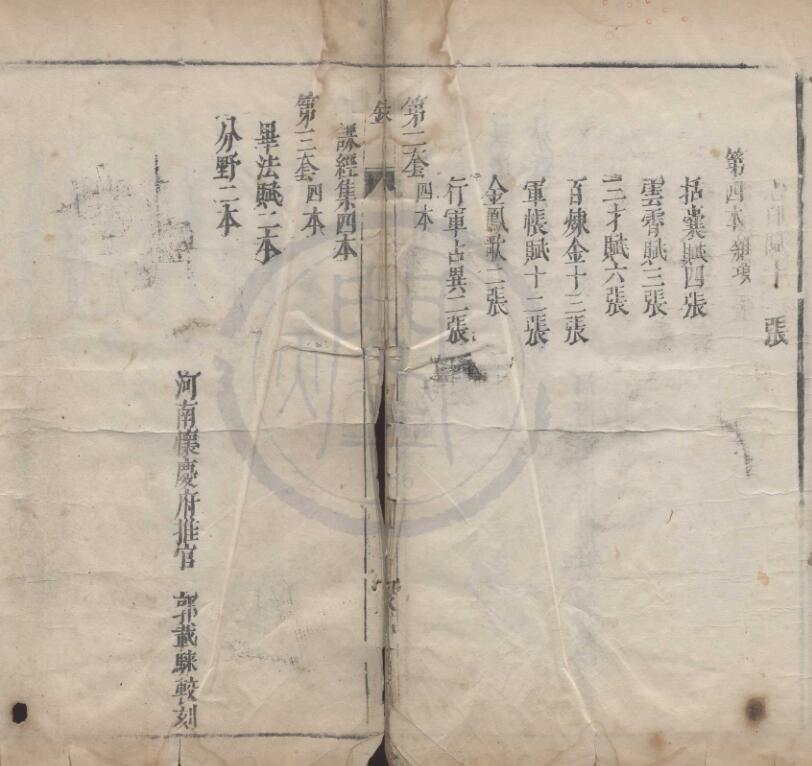 張
第四本
括囊賦四張
雲霄賦三張
三才賦六張
百煉金十三張
軍帳賦十二張
金鳳歌二張
行軍占異二張
第二套四本
課經集四本
第三套四本
畢法賦二本
分野二本
河南懷慶府推官 郭載騋較刻